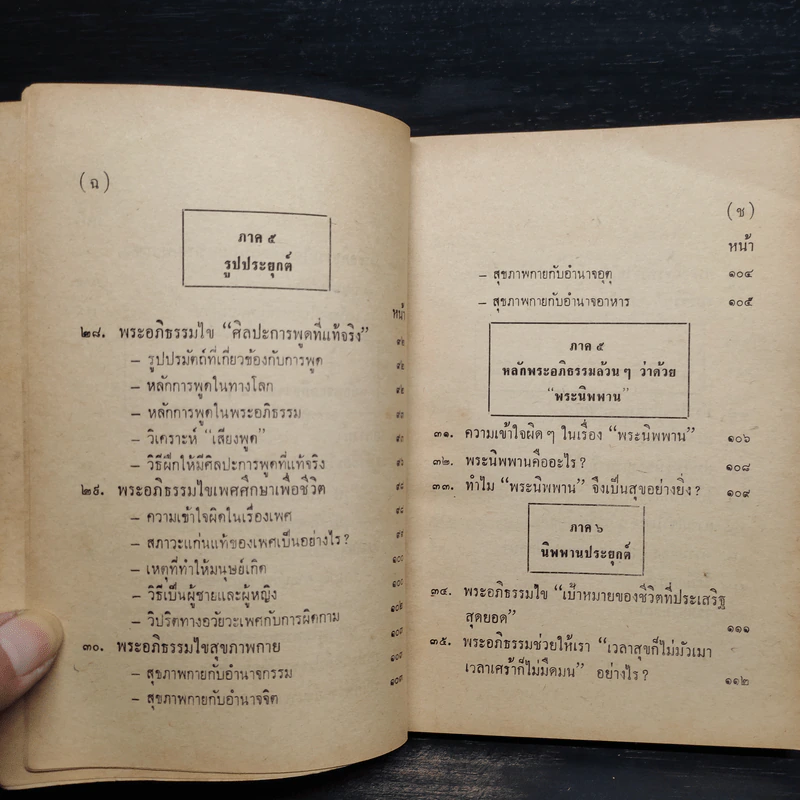 (ฉ)
ภาค ๕
รูปประยุกต์
หน้า
๒๘. พระอภิธรรมไข “ศิลปะการพูดที่แท้จริง”
– รูปปรมัตถ์ที่เกี่ยวข้องกับการพูด
– หลักการพูดในทางโลก
– หลักการพูดในพระอภิธรรม
– วิเคราะห์ “เสียงพูด”
– วิธีฝึกให้มีศิลปะการพูดที่แท้จริง
๒๙. พระอภิธรรมไขเพศศึกษาเพื่อชีวิต
– ความเข้าใจผิดในเรื่องเพศ
– สภาวะแก่นแท้ของเพศเป็นอย่างไร?
– เหตุที่ทำให้มนุษย์เกิด
– วิธีเป็นผู้ชายและผู้หญิง
– วิปริตทางอวัยวะเพศกับการผิดกาม
๓๐. พระอภิธรรมไขสุขภาพกาย
– สุขภาพกายกับอำนาจกรรม
– สุขภาพกายกับอำนาจจิต
(ช)
หน้า
– สุขภาพกายกับอำนาจอุตุ ๑๐๔
– สุขภาพกายกับอำนาจอาหาร ๑๐๕
ภาค ๕
หลักพระอภิธรรมล้วน ๆ ว่าด้วย
“พระนิพพาน”
๓๑. ความเข้าใจผิด ๆ ในเรื่อง “พระนิพพาน” ๑๐๖
๓๒. พระนิพพานคืออะไร? ๑๐๘
๓๓. ทำไม “พระนิพพาน” จึงเป็นสุขอย่างยิ่ง? ๑๐๙
ภาค ๖
นิพพานประยุกต์
๓๔. พระอภิธรรมไข “เป้าหมายของชีวิตที่ประเสริฐ
สุดยอด” ๑๑๑
๓๕. พระอภิธรรมช่วยให้เรา “เวลาสุขก็ไม่มัวเมา
เวลาเศร้าก็ไม่มืดมน” อย่างไร? ๑๑๒